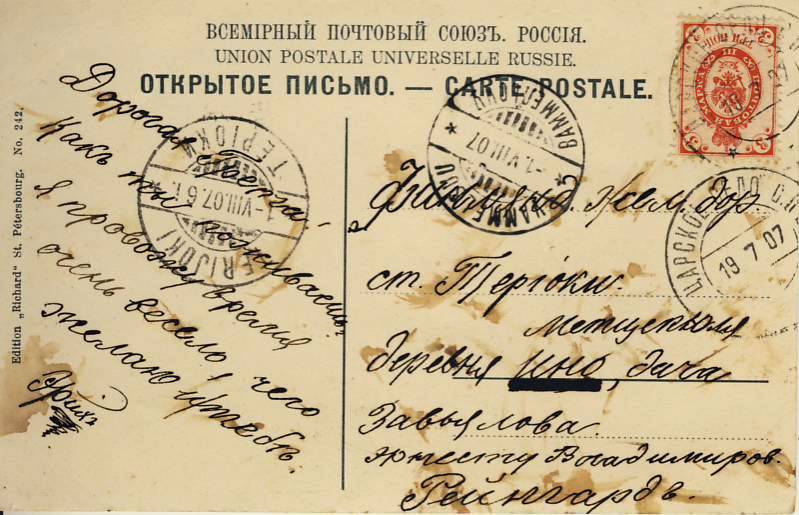 ВСЕМІРНЫЙ ПОЧТОВЫЙ СОЮЗЪ. РОССІЯ.
UNION POSTALE UNIVERSELLE RUSSIE.
ОТКРЫТОЕ ПИСЬМО. — CARTE POSTALE.
Edition „Richard" St. Pétersbourg. No. 242.
Дорогая
какъ ты поживаешь.
я провожу время
очень весело! чего
желаю и тебѣ.
TERIJOKI
1-VIII.07.6
ТЕРІОКИ
VAMMELJOKI
-1.VIII.07
ВАММЕЛЬЮКИ
ЦАРСКОЕ СЕЛО
19 7 07
3
III
Финлянд. жел. дор
ст. Теріоки.
деревня Ино, дача
Завьялова.
Эрнесту Владимиров.
Рейнгардъ.